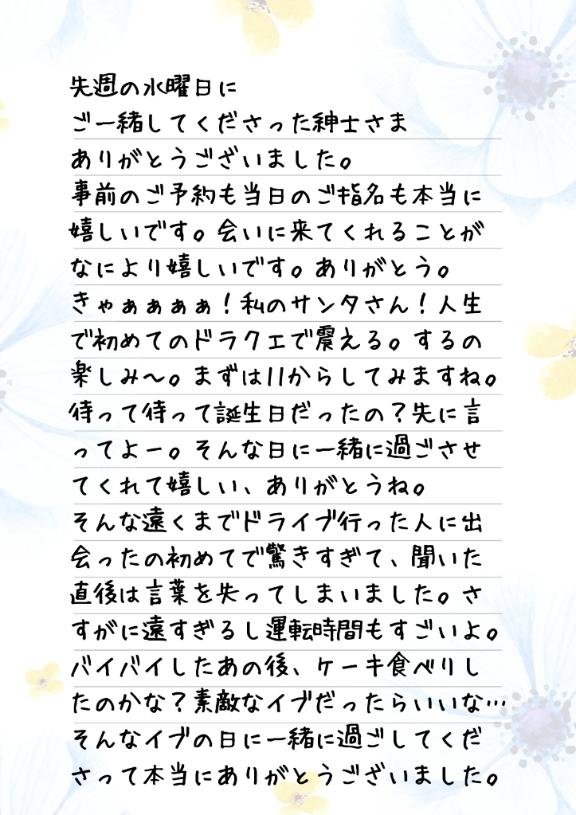 先週の水曜日に
ご一緒してくださった紳士さま
ありがとうございました。
事前のご予約も当日のご指名も本当に
嬉しいです。会いに来てくれることが
なにより嬉しいです。ありがとう。
きゃぁぁぁぁ！私のサンタさん！人生
で初めてのドラクエで震える。するの
楽しみ～。まずは11からしてみますね。
待って待って誕生日だったの？先に言
ってよー。そんな日に一緒に過ごさせ
てくれて嬉しい、ありがとうね。
そんな遠くまでドライブ行った人に出
会ったの初めてで驚きすぎて、聞いた
直後は言葉を失ってしまいました。さ
すがに遠すぎるし運転時間もすごいよ。
バイバイしたあの後、ケーキ食べりし
たのかな？素敵なイブだったらいいな…
そんなイブの日に一緒に過ごしてくだ
さって本当にありがとうございました。